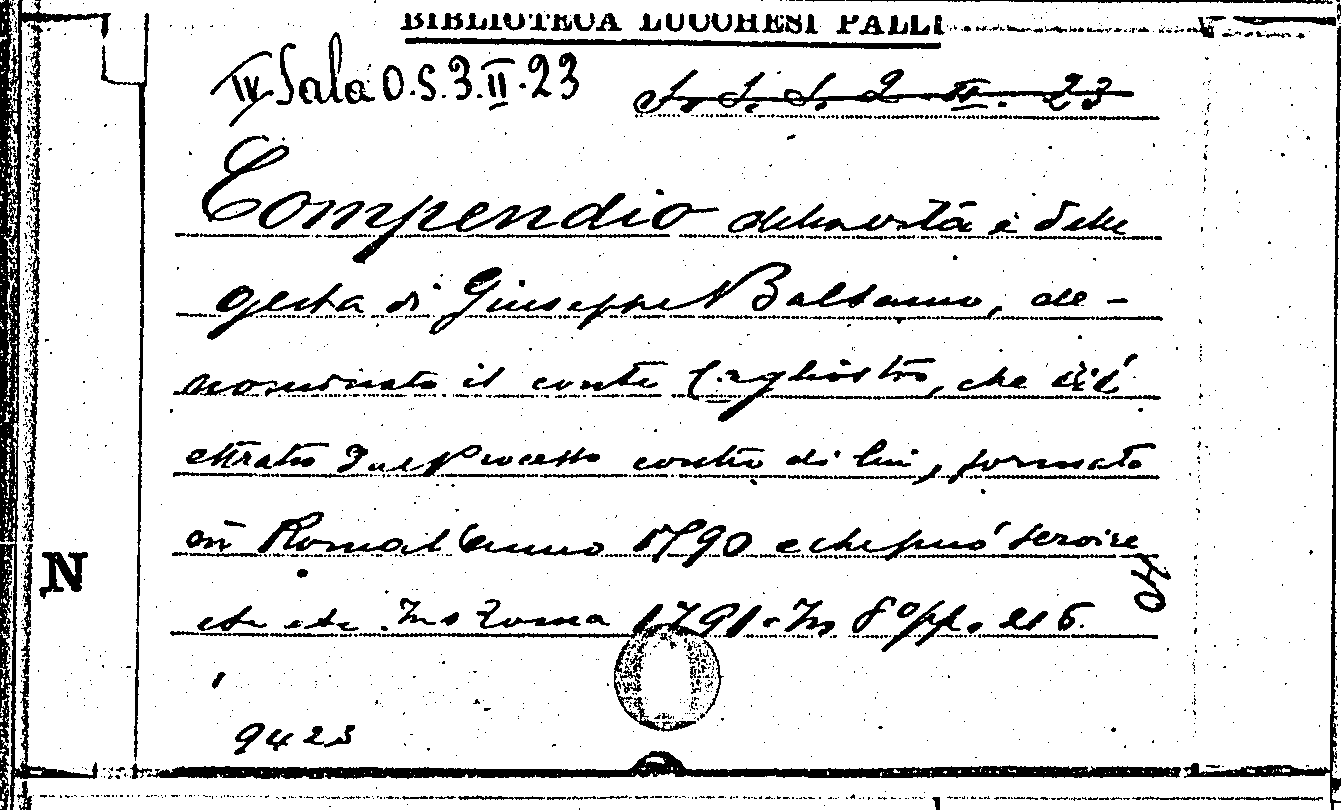 BIBLIOTECA LUCCHESI PALLI
IV Sala O.S.3.II.23
S. S. S. 2 II. 23
Compendio della vita e delle
gesta di Giuseppe Balsamo, de-
nominato il conte Cagliostro, che si é
estratto dal Processo contro di lui, formato
in Roma l'anno 1790 e che può servire
etc etc. In Roma 1791. In 8° pp. 216.
N
9423